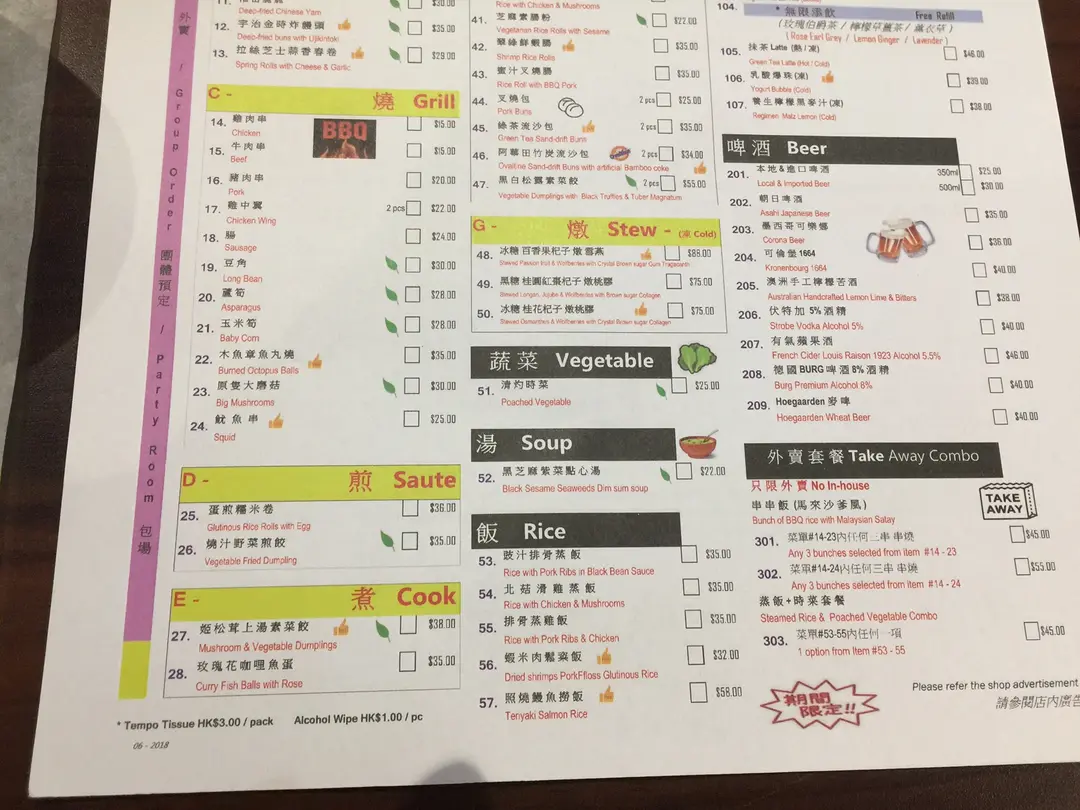 外賣 / Group Order 團體預定 / Party Room 包場
11.
Deep-fried Chinese Yam
$30.00
12. 宇治金時炸饅頭
$35.00
Deep-fried buns with Ujikintoki
13. 拉絲芝士蒜香春卷
$29.00
Spring Rolls with Cheese & Garlic
C - 燒 Grill
BBQ
14. 雞肉串 $15.00
Chicken
15. 牛肉串 $15.00
Beef
16. 豬肉串 $20.00
Pork
17. 雞中翼 2 pcs $22.00
Chicken Wing
18. 腸 $24.00
Sausage
19. 豆角 $30.00
Long Bean
20. 蘆筍 $28.00
Asparagus
21. 玉米筍 $28.00
Baby Corn
22. 木魚章魚丸燒 $35.00
Burned Octopus Balls
23. 原隻大磨菇 $30.00
Big Mushrooms
24. 魷魚串 $25.00
Squid
D - 煎 Saute
25. 蛋煎糯米卷 $36.00
Glutinous Rice Rolls with Egg
26. 燒汁野菜煎餃 $35.00
Vegetable Fried Dumpling
E - 煮 Cook
27. 姬松茸上湯素菜餃 $38.00
Mushroom & Vegetable Dumplings
28. 玫瑰花咖哩魚蛋 $35.00
Curry Fish Balls with Rose
* Tempo Tissue HK$3.00 / pack Alcohol Wipe HK$1.00 / pc
06 - 2018
Rice with Chicken & Mushrooms
41. 芝麻素腸粉 $22.00
Vegetarian Rice Rolls with Sesame
42. 翠綠鮮蝦腸 $35.00
Shrimp Rice Rolls
43. 蜜汁叉燒腸 $35.00
Rice Roll with BBQ Pork
44. 叉燒包 2 pcs $25.00
Pork Buns
45. 綠茶流沙包 2 pcs $35.00
Green Tea Sand-drift Buns
46. 阿華田竹炭流沙包 2 pcs $34.00
Ovaltine Sand-drift Buns with artificial Bamboo coke
47. 黑白松露素菜餃 2 pcs $55.00
Vegetable Dumplings with Black Truffles & Tuber Magnatum
G - 燉 Stew - (凍 Cold)
48. 冰糖百香果杞子燉雪燕 $86.00
Stewed Passion fruit & Wolfberries with Crystal Brown sugar Gum Tragacanth
49. 黑糖桂圓紅棗杞子燉桃膠 $75.00
Stewed Longan, Jujube & Wolfberries with Brown sugar Collagen
50. 冰糖桂花杞子燉桃膠 $75.00
Stewed Osmanthus & Wolfberries with Crystal Brown sugar Collagen
蔬菜 Vegetable
51. 清灼時菜 $25.00
Poached Vegetable
湯 Soup
52. 黑芝麻紫菜點心湯 $22.00
Black Sesame Seaweeds Dim sum soup
飯 Rice
53. 豉汁排骨蒸飯 $35.00
Rice with Pork Ribs in Black Bean Sauce
54. 北菇滑雞蒸飯 $35.00
Rice with Chicken & Mushrooms
55. 排骨蒸雞飯 $35.00
Rice with Pork Ribs & Chicken
56. 蝦米肉鬆糯飯 $32.00
Dried shrimps PorkFfloss Glutinous Rice
57. 照燒鰻魚撈飯 $58.00
Teriyaki Salmon Rice
104.
* 無限添飲 Free Refill
(玫瑰伯爵茶 / 檸檬草薑茶 / 薰衣草)
( Rose Earl Grey / Lemon Ginger / Lavender )
105. 抹茶 Latte (熱 / 凍) $46.00
Green Tea Latte (Hot / Cold)
106. 乳酸爆珠(凍) $39.00
Yogurt Bubble (Cold)
107. 養生檸檬黑麥汁(凍) $38.00
Regimen Malz Lemon (Cold)
啤酒 Beer
201. 本地&進口啤酒 350ml $25.00
Local & Imported Beer 500ml $30.00
202. 朝日啤酒 $35.00
Asahi Japanese Beer
203. 墨西哥可樂娜 $36.00
Corona Beer
204. 可倫堡 1664 $40.00
Kronenbourg 1664
205. 澳洲手工檸檬苦酒 $38.00
Australian Handcrafted Lemon Lime & Bitters
206. 伏特加 5% 酒精 $40.00
Strobe Vodka Alcohol 5%
207. 有氣蘋果酒 $46.00
French Cider Louis Raison 1923 Alcohol 5.5%
208. 德國 BURG 啤酒 8% 酒精 $40.00
Burg Premium Alcohol 8%
209. Hoegaarden 麥啤 $40.00
Hoegaarden Wheat Beer
外賣套餐 Take Away Combo
只限外賣 No In-house
TAKE AWAY
串串飯 (馬來沙爹風)
Bunch of BBQ rice with Malaysian Satay
301. 菜單#14-23內任何三串 串燒 $45.00
Any 3 bunches selected from item #14 - 23
302. 菜單#14-24內任何三串 串燒 $55.00
Any 3 bunches selected from item #14 - 24
蒸飯+時菜套餐
Steamed Rice & Poached Vegetable Combo
303. 菜單#53-55內任何一項 $45.00
1 option from Item #53 - 55
期間限定!!
Please refer the shop advertisement
請參閱店內廣告